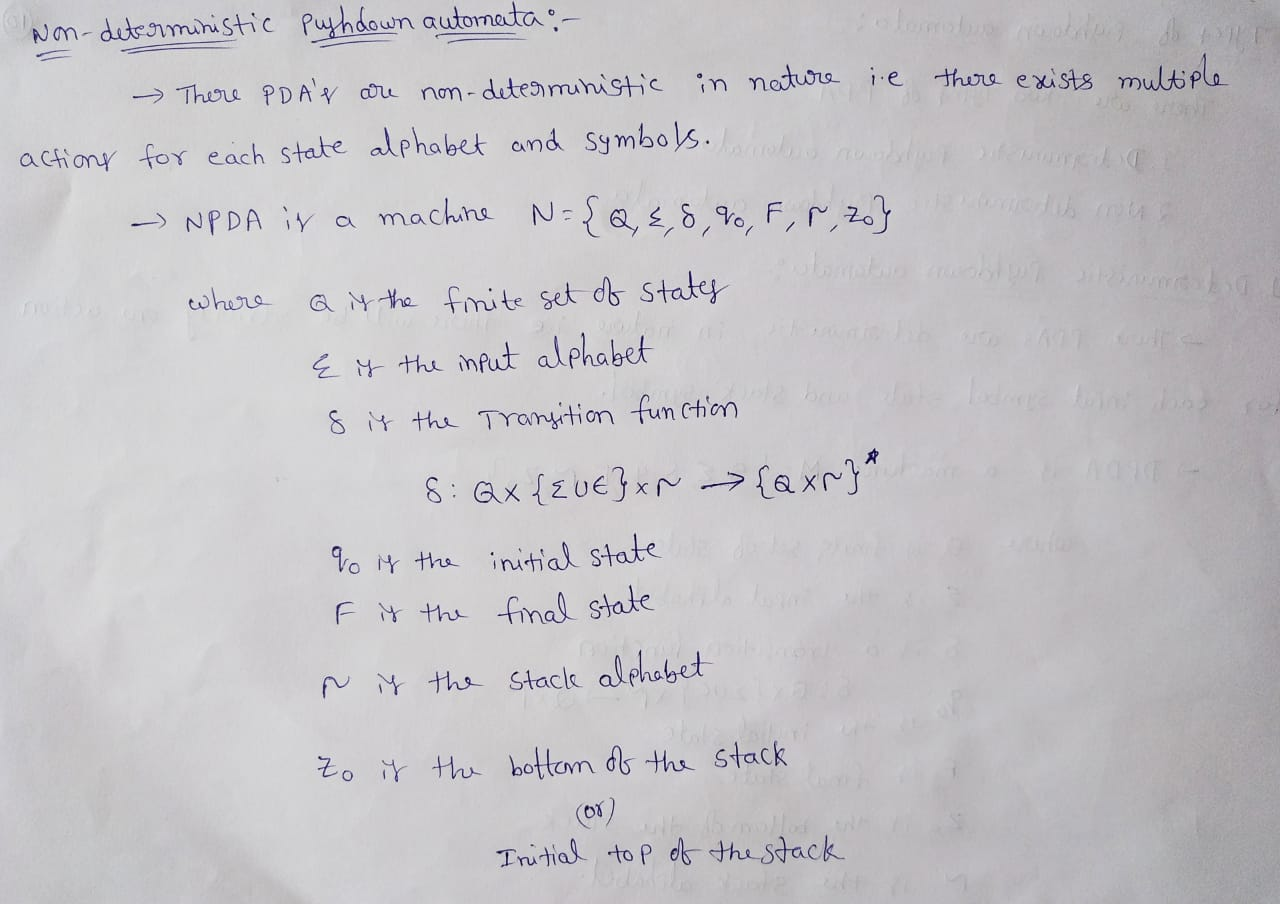 Non-deterministic Pushdown automata:-
→ There PDA's are non-deterministic in nature i.e there exists multiple
actions for each state alphabet and symbols.
→ NPDA is a machine N = {Q, Σ, δ, q₀, F, Γ, z₀}
where Q is the finite set of states
Σ is the input alphabet
δ is the Transition function
δ: Q x {Σ U ϵ} x Γ → {Q x Γ}*
q₀ is the initial state
F is the final state
Γ is the stack alphabet
z₀ is the bottom of the stack
(or)
Initial top of the stack